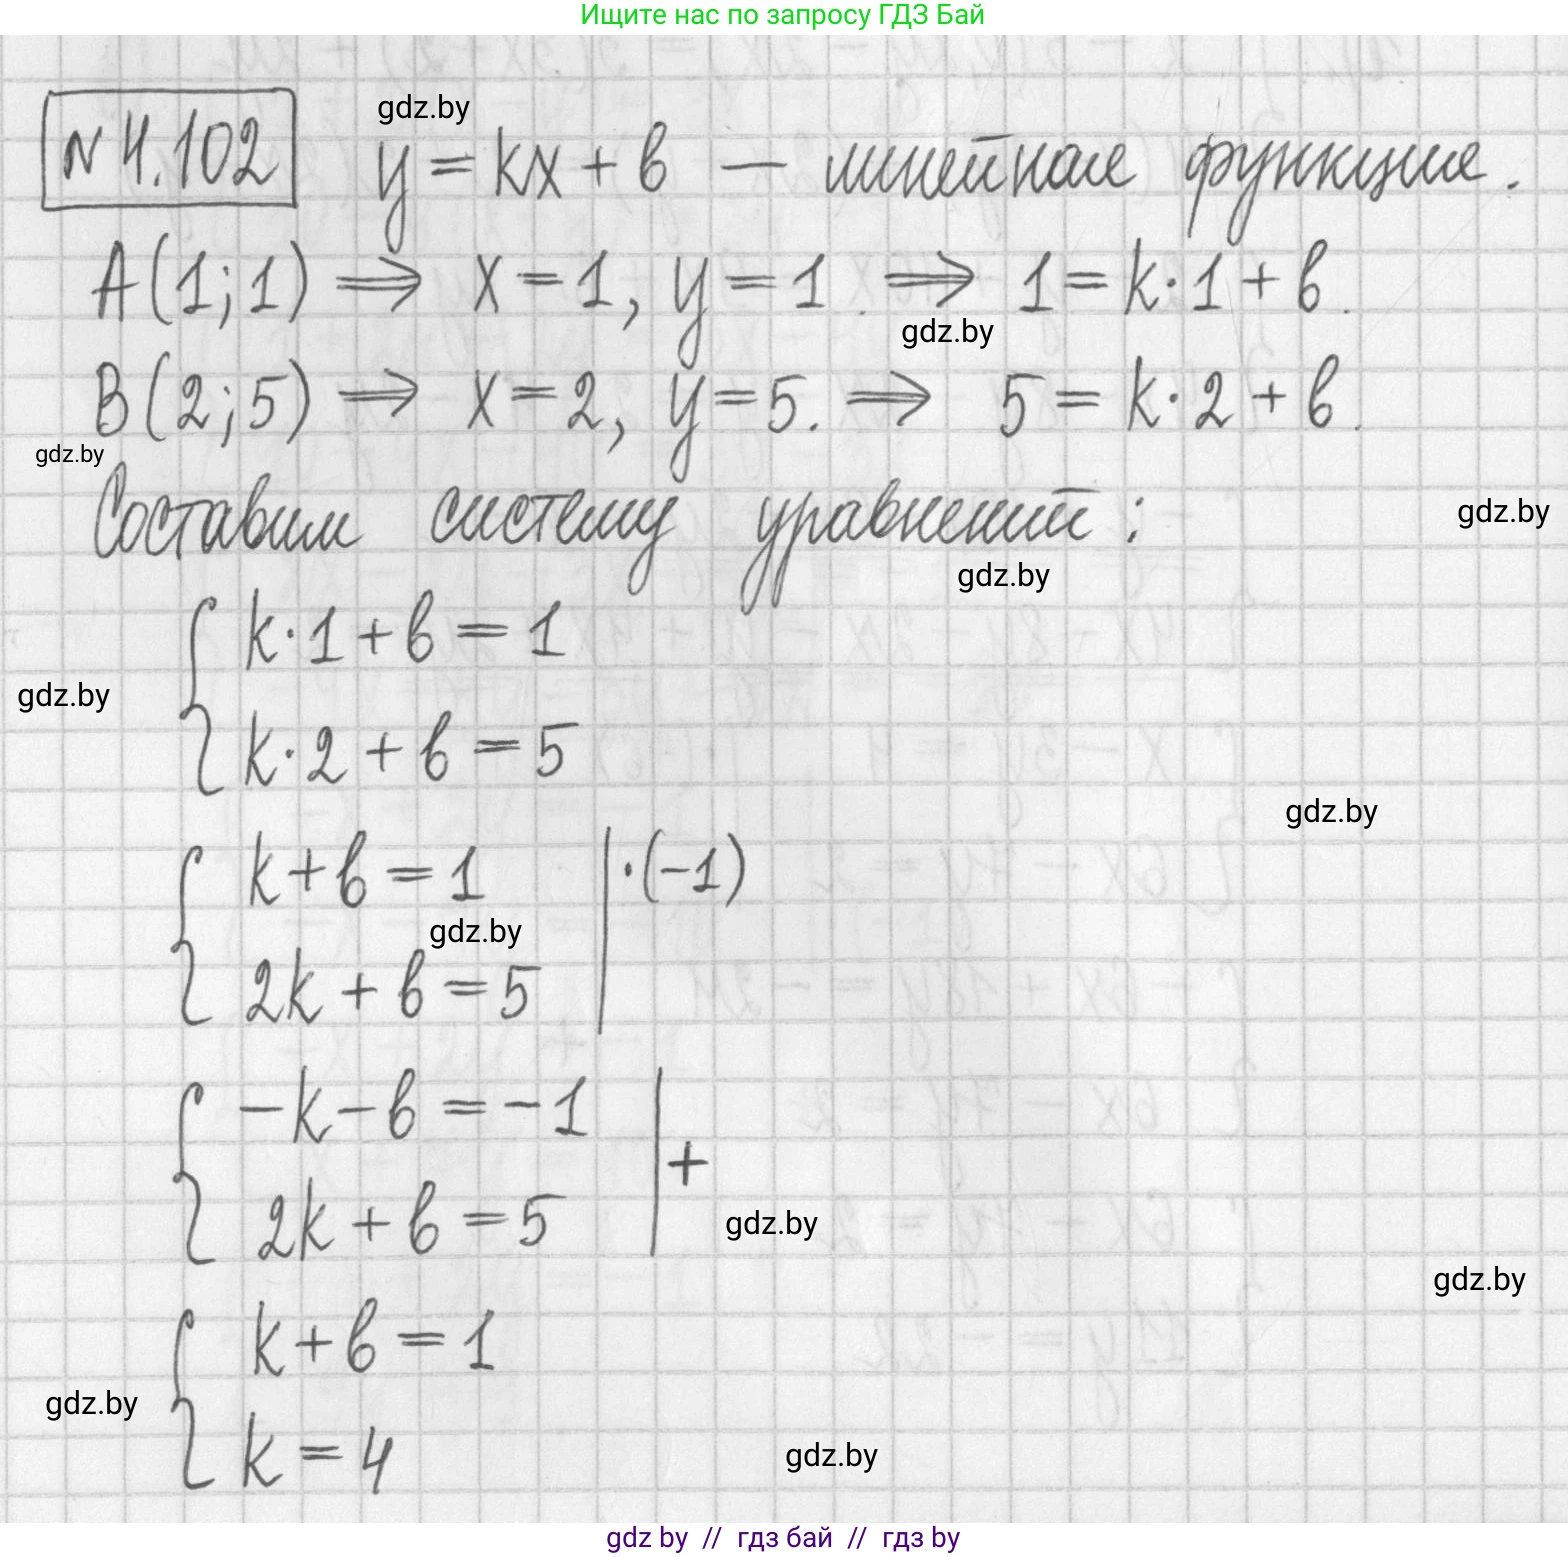 Ищите нас по запросу ГДЗ Бай
gdz.by
N 4.102 y = kx + b — линейная функция.
A(1;1) ⟹ x = 1, y = 1. ⟹ 1 = k·1 + b.
gdz.by
B(2;5) ⟹ x = 2, y = 5. ⟹ 5 = k·2 + b.
gdz.by
Составим систему уравнений:
gdz.by
gdz.by
{ k·1 + b = 1
gdz.by
k·2 + b = 5
gdz.by
{ k + b = 1 | ·(-1)
gdz.by
2k + b = 5
{ -k - b = -1 | +
2k + b = 5
gdz.by
gdz.by
{ k + b = 1
gdz.by
k = 4
gdz.by
gdz by // гдз бай // гдз by